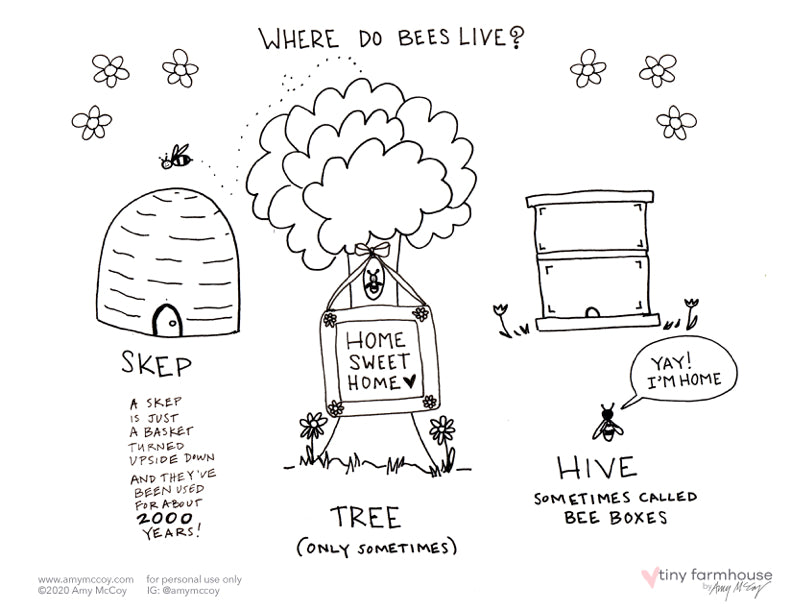 WHERE DO BEES LIVE?
HOME
SWEET
HOME♥
SKEP
A SKEP
IS JUST
A BASKET
TURNED
UPSIDE DOWN
AND THEY'VE
BEEN USED
FOR ABOUT
2000
YEARS!
TREE
(ONLY SOMETIMES)
YAY!
I'M HOME
HIVE
SOMETIMES CALLED
BEE BOXES
www.amymccoy.com for personal use only
©2020 Amy McCoy IG: @amymccoy
tiny farmhouse
by Amy McCoy